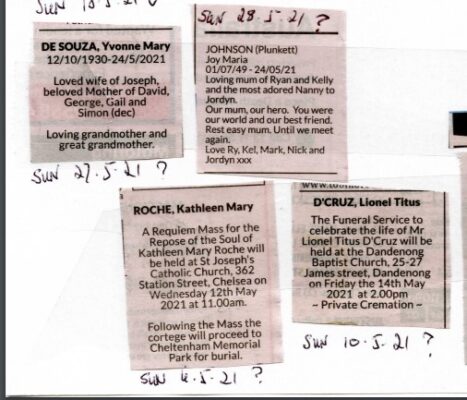 SUN 28.5.21 ?
DE SOUZA, Yvonne Mary
12/10/1930-24/5/2021
Loved wife of Joseph,
beloved Mother of David,
George, Gail and
Simon (dec)
Loving grandmother and
great grandmother.
SUN 27.5.21 ?
JOHNSON (Plunkett)
Joy Maria
01/07/49 - 24/05/21
Loving mum of Ryan and Kelly
and the most adored Nanny to
Jordyn.
Our mum, our hero. You were
our world and our best friend.
Rest easy mum. Until we meet
again.
Love Ry, Kel, Mark, Nick and
Jordyn xxx
ROCHE, Kathleen Mary
A Requiem Mass for the
Repose of the Soul of
Kathleen Mary Roche will
be held at St Joseph's
Catholic Church, 362
Station Street, Chelsea on
Wednesday 12th May
2021 at 11.00am.
Following the Mass the
cortege will proceed to
Cheltenham Memorial
Park for burial.
SUN .5.21 ?
D'CRUZ, Lionel Titus
The Funeral Service to
celebrate the life of Mr
Lionel Titus D'Cruz will be
held at the Dandenong
Baptist Church, 25-27
James street, Dandenong
on Friday the 14th May
2021 at 2.00pm
~ Private Cremation ~
SUN 10.5.21 ?